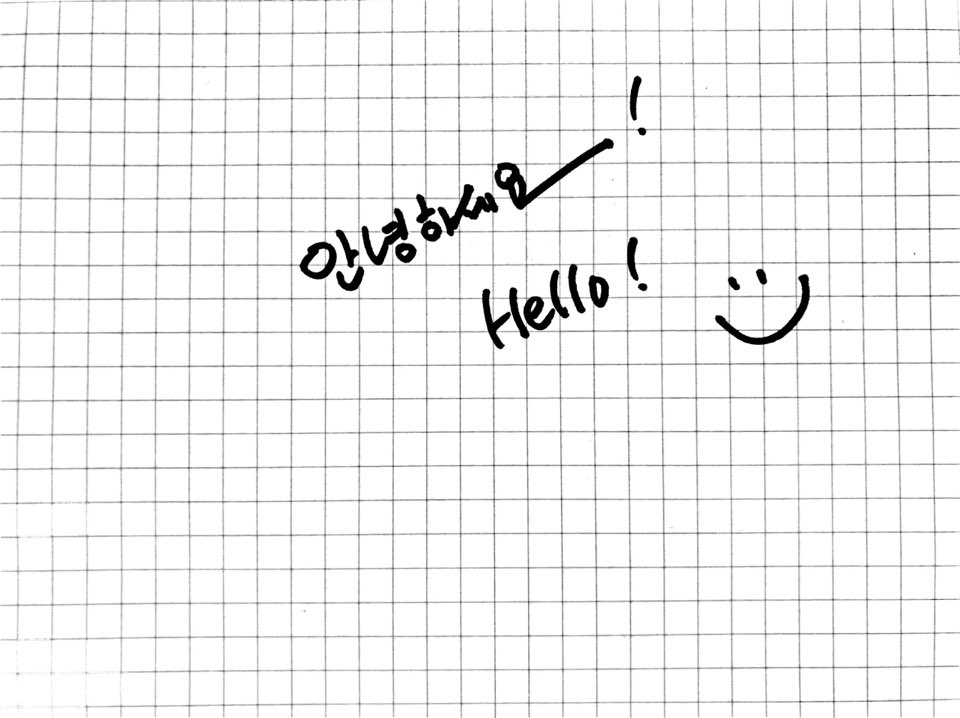 안녕하세요!
Hello!